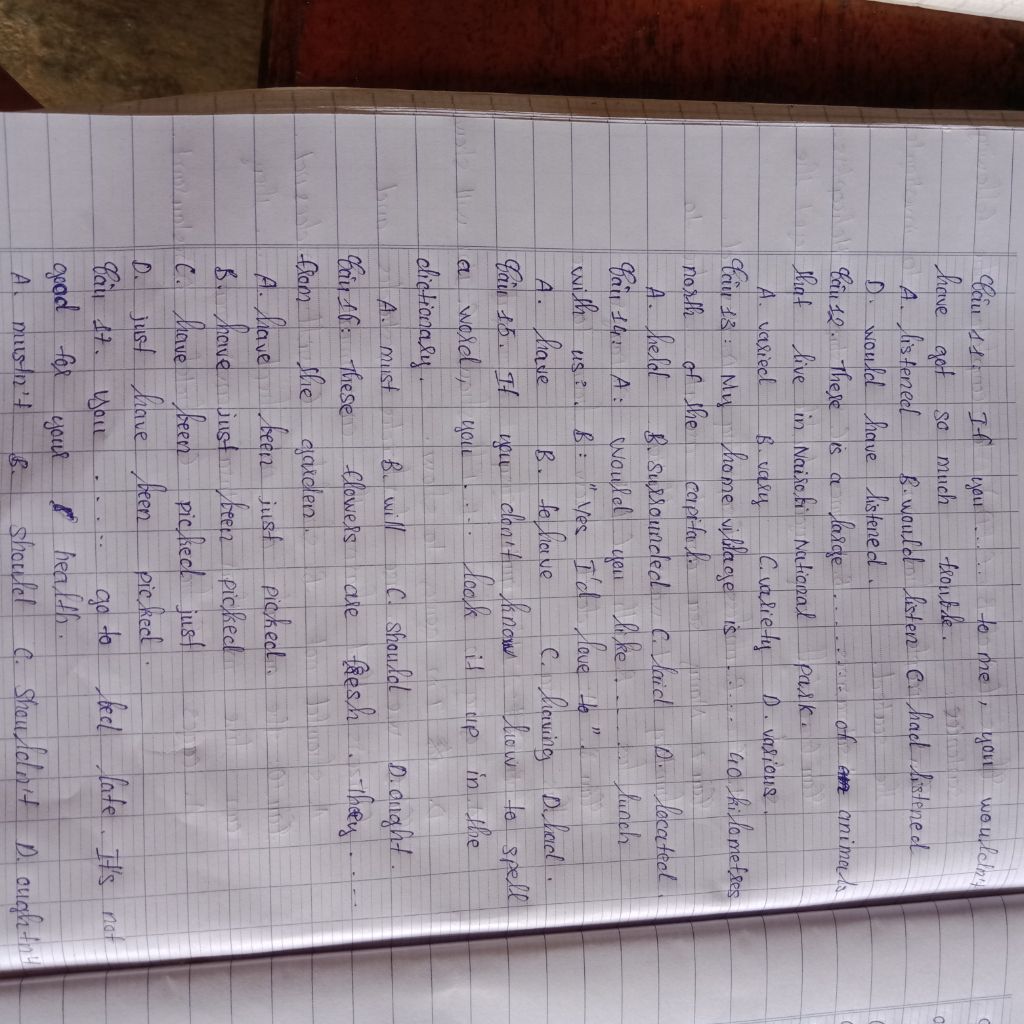 Câu 11: If you ........ to me, you wouldn't
have got so much trouble.
A. listened B. would listen C. had listened
D. would have listened.
Câu 12: There is a large ........... of animals
that live in Nairobi National park.
A. varied B. vary C. variety D. various.
Câu 13: My home village is ........ 40 kilometres
north of the capital.
A. held B. surrounded C. laid D. located.
Câu 14: A: would you like ....... lunch
with us? B: "Yes I'd love to".
A. have B. to have C. having D. had.
Câu 15. If you don't know how to spell
a word, you .... look it up in the
dictionary.
A. must B. will C. should D. ought.
Câu 16: These flowers are fresh. They ....
from the garden.
A. have been just picked.
B. have just been picked
C. have been picked just
D. just have been picked.
Câu 17. You ...... go to bed late. It's not
good for your health.
A. mustn't B. should C. shouldn't D. oughtn't